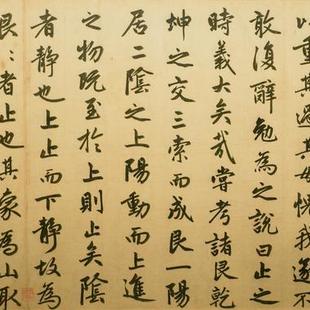 以重其過其毋愧我遂不
敢復辭勉為之說曰止之
時義大矣哉嘗考諸艮乾
坤之交三索而成艮一陽
居二陰之上陽動而上進
之物既至於上則止矣陰
者靜也上止而下靜故為
艮〻者止也其象為山取